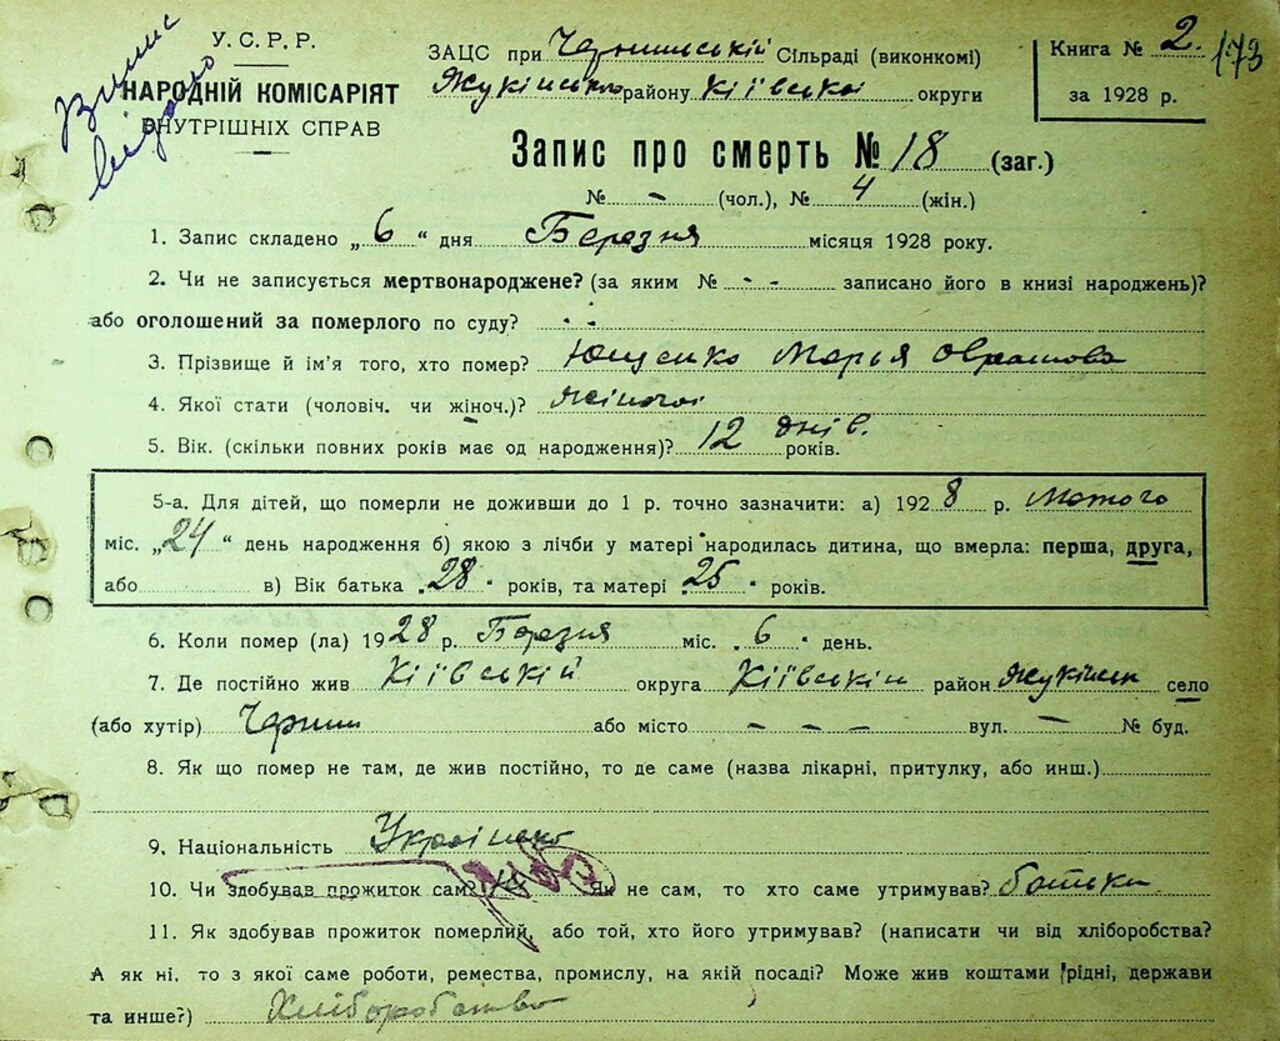 Випис видано
У. С. Р. Р.
НАРОДНІЙ КОМІСАРІЯТ
ВНУТРІШНІХ СПРАВ
ЗАЦС при Сільраді (виконкомі)
Жукінського району Київської округи
Книга № 2. 173
за 1928 р.
Запис про смерть № 18 (заг.)
№ - (чол.), № 4 (жін.)
1. Запис складено „ 6 “ дня Березня місяця 1928 року.
2. Чи не записується мертвонароджене? (за яким № - - записано його в книзі народжень)?
або оголошений за померлого по суду? - -
3. Прізвище й ім'я того, хто помер? Ющенко Марья
4. Якої стати (чоловіч. чи жіноч.)? жіночої
5. Вік. (скільки повних років має од народження)? 12 днів. років.
5-а. Для дітей, що померли не доживши до 1 р. точно зазначити: а) 1928 р. Лютого
міс. „24“ день народження б) якою з лічби у матері народилась дитина, що вмерла: перша, друга,
або в) Вік батька „28“ років, та матері „25“ років.
6. Коли помер (ла) 1928 р. Березня міс. „6“ день.
7. Де постійно жив Київській округа Київській район Жукінськ село
(або хутір) Чернин або місто - - - вул. - № буд.
8. Як що помер не там, де жив постійно, то де саме (назва лікарні, притулку, або инш.)
9. Національність
10. Чи здобував прожиток сам? Як не сам, то хто саме утримував? батьки
11. Як здобував прожиток померлий, або той, хто його утримував? (написати чи від хліборобства?
А як ні, то з якої саме роботи, ремества, промислу, на якій посаді? Може жив коштами рідні, держави
та инше?) Хліборобство